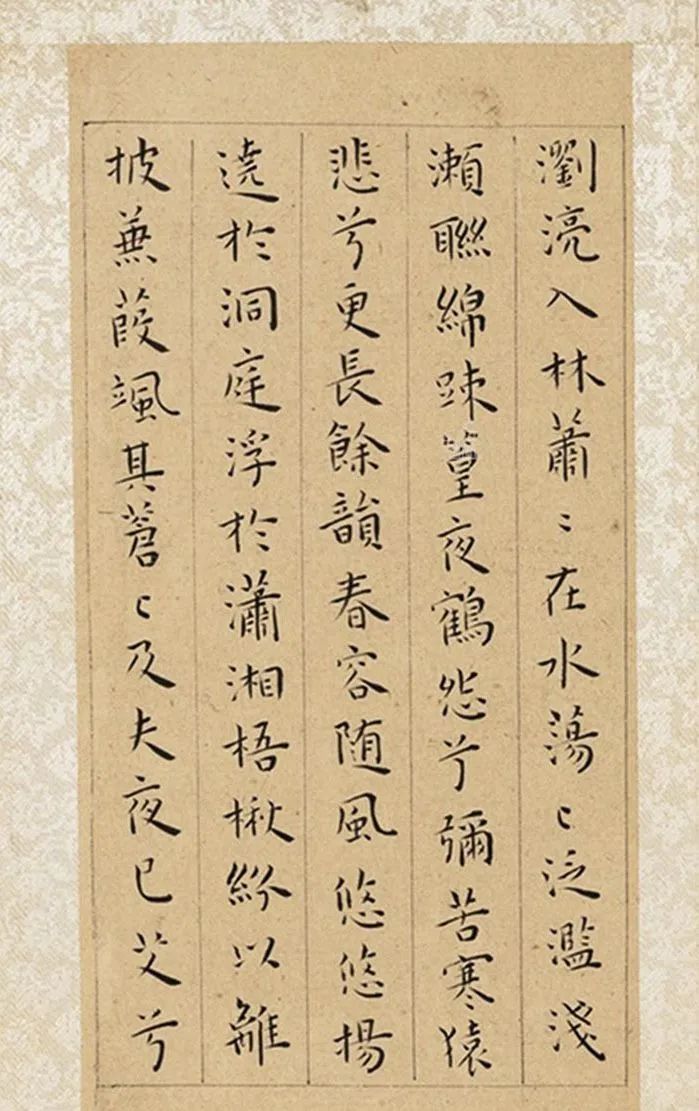 瀏湸入林蕭〻在水蕩〻泛濫淺
瀨聯綿踈篁夜鶴怨兮彌苦寒猿
悲兮更長餘韻春容随風悠悠揚
遶於洞庭浮於瀟湘梧楸紛以離
披蒹葭颯其蒼〻及夫夜已艾兮